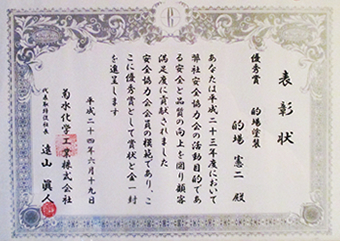 表彰状
優秀賞 的場塗装
的場 憲二 殿
あなたは平成二十三年度において
弊社安全協力会の活動目的であ
る安全と品質の向上を図り顧客
満足度に貢献されました
安全協力会会員の模範であり、こ
こに優秀賞として賞状と金一封
を進呈します
平成二十四年六月十九日
菊水化学工業株式会社
代表取締役社長 遠山 眞人